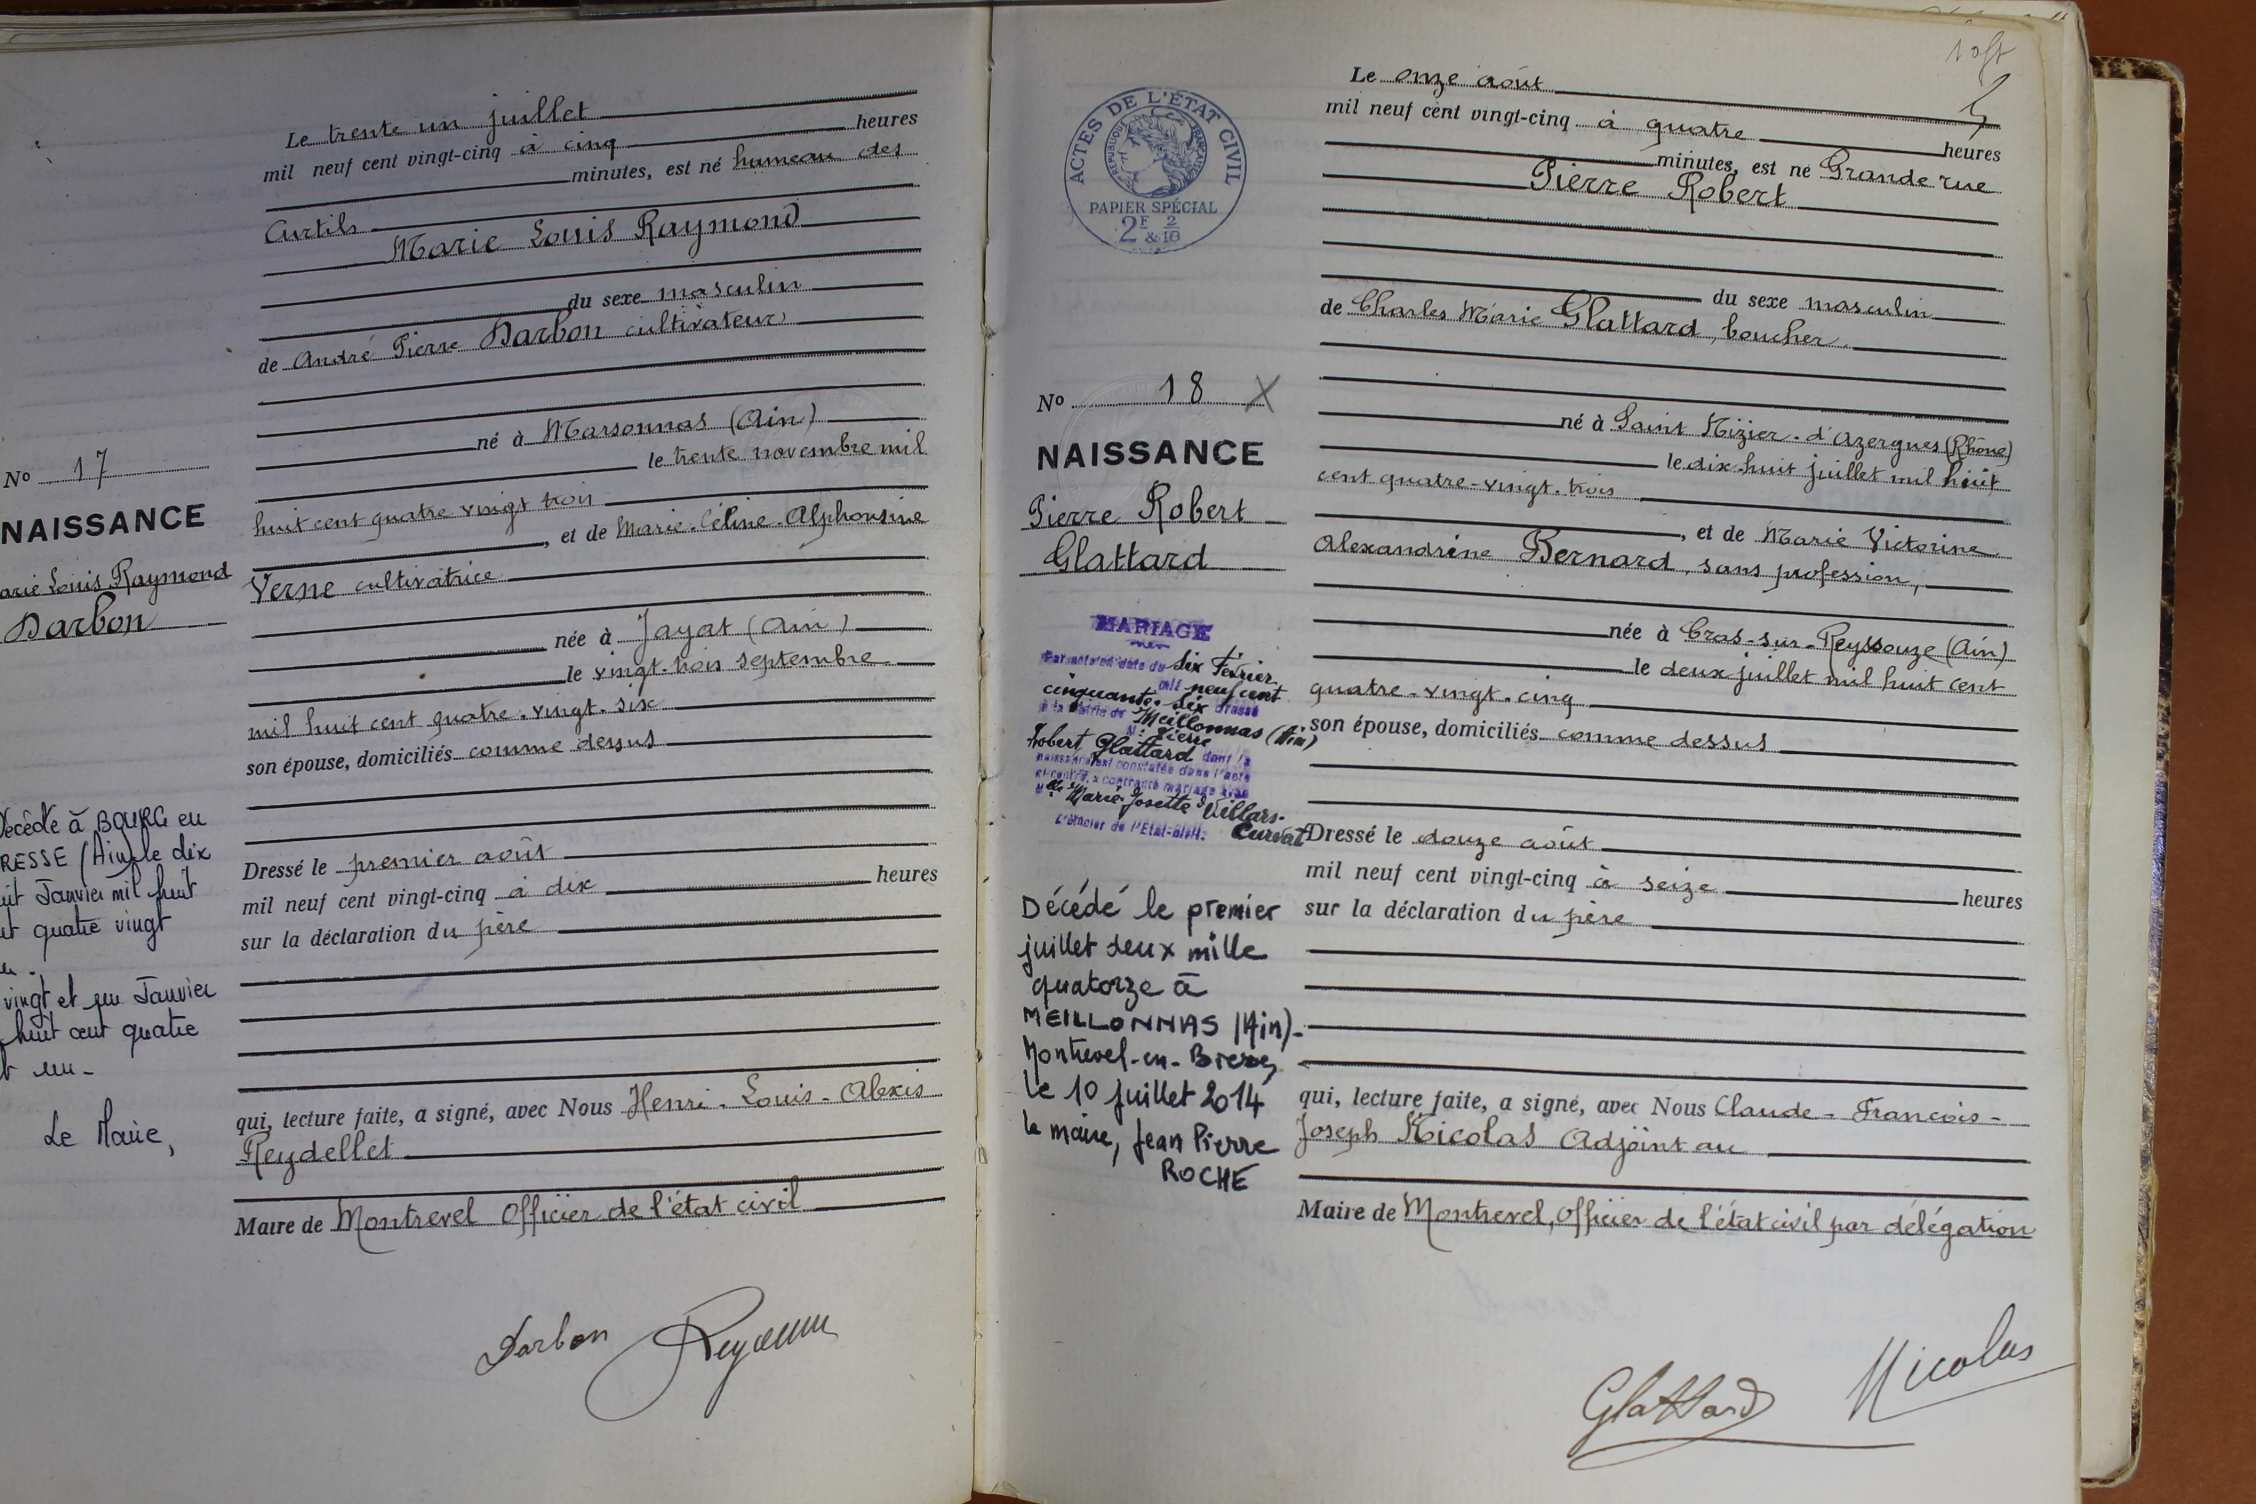 Le trente un juillet
mil neuf cent vingt-cinq à cinq heures
minutes, est né hameau des
Curtils
Marie Louis Raymond
du sexe masculin
de André Pierre Darbon cultivateur
né à Marsonnas (Ain)
le trente novembre mil
huit cent quatre vingt trois
, et de Marie-Céline-Alphonsine
Verne cultivatrice
née à Jayat (Ain)
le vingt-trois septembre
mil huit cent quatre-vingt-six
son épouse, domiciliés comme dessus
Dressé le premier août
mil neuf cent vingt-cinq à dix heures
sur la déclaration du père
qui, lecture faite, a signé, avec Nous Henri-Louis-Alexis
Reydellet
Maire de Montrevel Officier de l'état civil
Darbon
No 17
NAISSANCE
arie Louis Raymond
Darbon
Décédé à BOURG en
RESSE (Ain) le dix
uit Janvier mil huit
nt quatre vingt
vingt et un Janvier
huit cent quatre
un -
Le Maire,
ACTES DE L'ÉTAT CIVIL
RÉPUBLIQUE FRANÇAISE
PAPIER SPÉCIAL
2F & 2/10
Le onze août
mil neuf cent vingt-cinq à quatre heures
minutes, est né Grande rue
Pierre Robert
du sexe masculin
de Charles Marie Glattard, boucher
né à Saint Nizier-d'Azergues (Rhône)
le dix-huit juillet mil huit
cent quatre-vingt-trois
, et de Marie Victorine
Alexandrine Bernard, sans profession,
née à Cras-sur-Reyssouze (Ain)
le deux juillet mil huit cent
quatre-vingt-cinq
son épouse, domiciliés comme dessus
Dressé le douze août
mil neuf cent vingt-cinq à seize heures
sur la déclaration du père
qui, lecture faite, a signé, avec Nous Claude-François-
Joseph Nicolas Adjoint au
Maire de Montrevel, Officier de l'état civil par délégation
Glattard
Nicolas
No 18 X
NAISSANCE
Pierre Robert
Glattard
MARIAGE
Par acte en date du six Février
mil neuf cent
cinquante-six dressé
à la Mairie de Meillonnas (Ain)
M. Pierre
Robert Glattard dont la
naissance est constatée dans l'acte
ci-contre, a contracté mariage avec
Mlle Marie Josette Villars-
Curvat
L'Officier de l'État-civil:
Décédé le premier
juillet deux mille
quatorze à
MEILLONNAS (Ain)-
Montrevel-en-Bresse,
le 10 juillet 2014
le maire, Jean Pierre
ROCHE